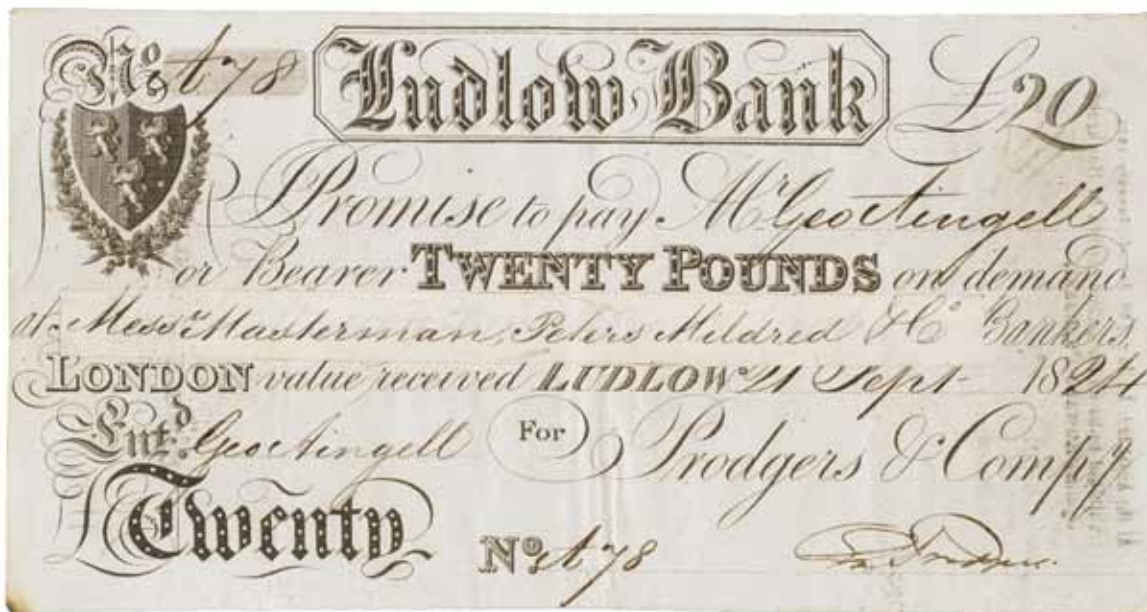 No A 78 Ludlow Bank £20
I Promise to pay Mr Geo Angell
or Bearer TWENTY POUNDS on demand
at Messrs Masterman, Peters Mildred & Co Bankers,
LONDON value received LUDLOW 21 Sept 1824
Entd. Geo Angell For Prodgers & Compy
Twenty No A 78